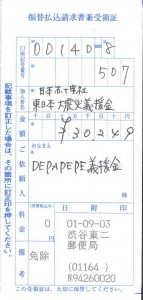 振替払込請求書兼受領証
口座記号番号
00140=8
507
加入者名
日本赤十字社
東日本大震災義援金
金額
¥30249
ご依頼人
おなまえ
DEPAPEPE義援金
料金
(消費税込み)
0
日附印
備考
免除
01-09-03
渋谷東二
郵便局
(01164)
N94260020
記載事項を訂正した場合は、その箇所に訂正印を押してください。
この受領証は、大切に保管してください。